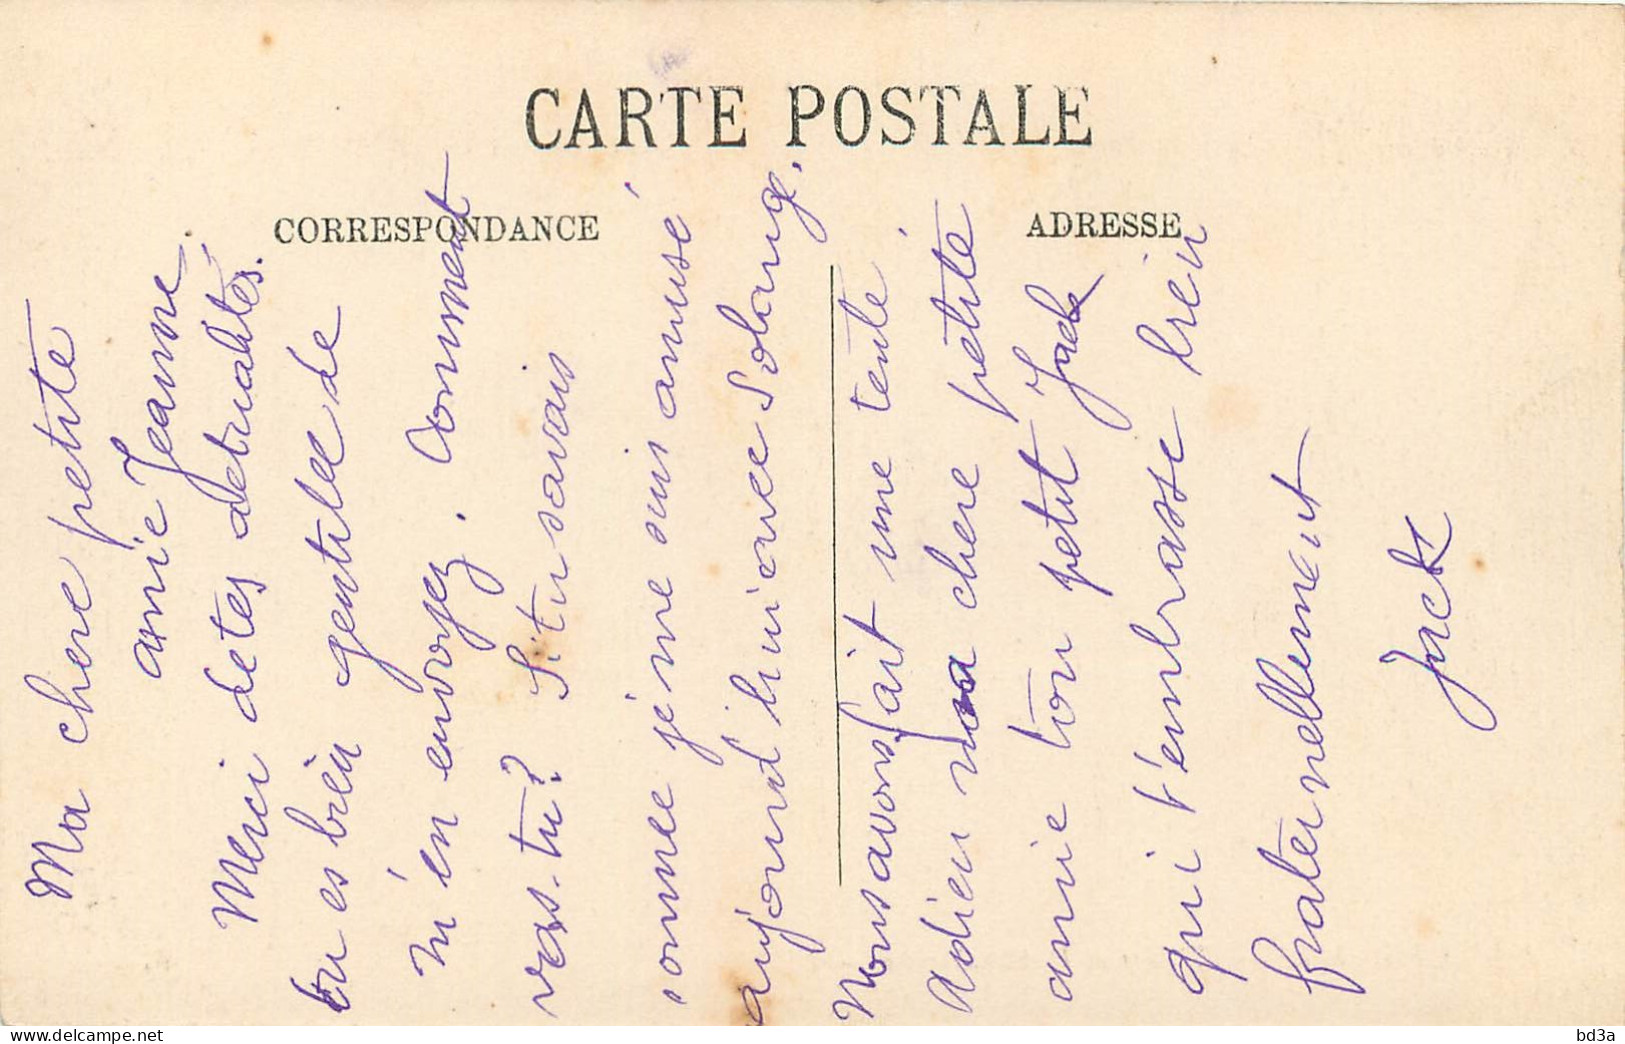 CARTE POSTALE
CORRESPONDANCE
ADRESSE
Ma chere petite
amie Jeanne,
Merci de tes actualités.
tu es bien gentille de
m'en envoyez. Comment
vas-tu? Si tu savais
comme je me suis amusé
aujourd'hui avec Solange.
Nous avons fait une tente
Adieu ma chere petite
amie ton petit Jack
qui t'embrasse bien
fraternellement
Jack
bd3a